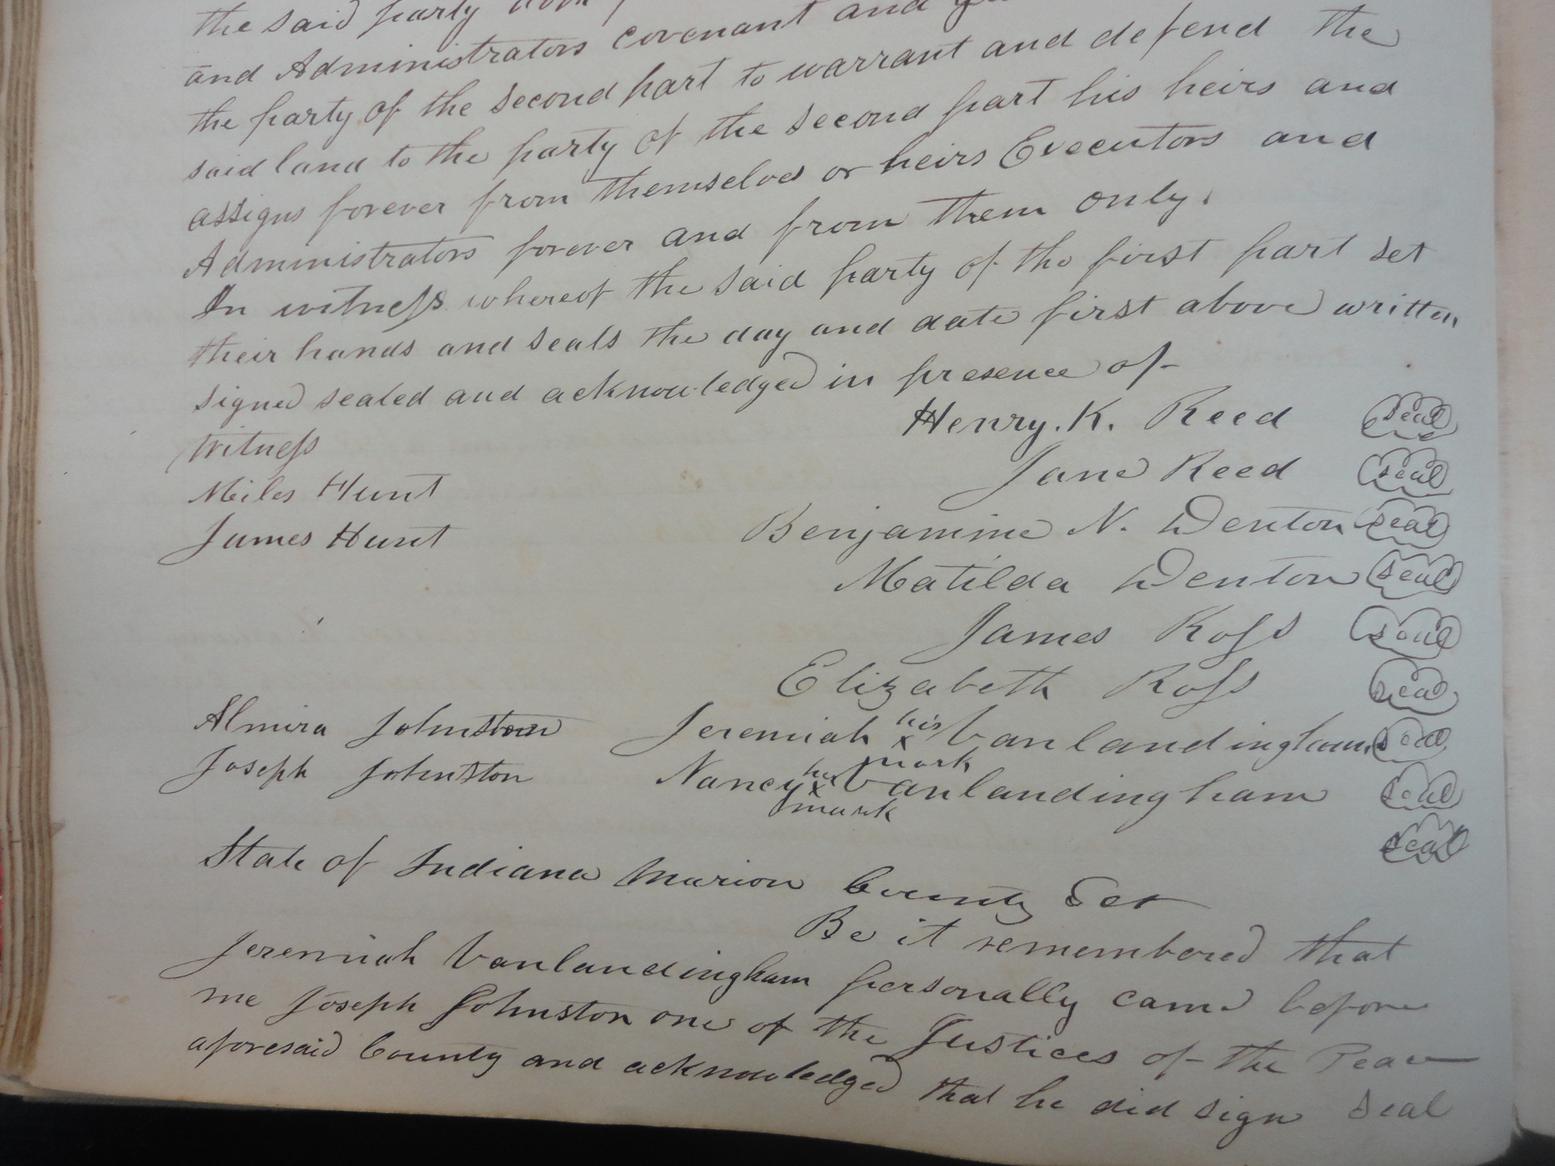 the said party
and Administrators covenant and
the party of the second part to warrant and defend the
said land to the party of the second part his heirs and
assigns forever from themselves or heirs Executors and
Administrators forever and from them only.
In witness whereof the said party of the first part set
their hands and seals the day and date first above written
signed sealed and acknowledged in presence of
Witness
Henry. K. Reed seal
Miles Hunt
Jane Reed seal
James Hunt
Benjamine N. Denton seal
Matilda Denton seal
James Ross seal
Elizabeth Ross seal
Almira Johnston Jeremiah his x mark Vanlandingham seal
Joseph Johnston Nancy her x mark Vanlandingham seal
seal
State of Indiana Marion County Sct
Be it remembered that
Jeremiah Vanlandingham personally came before
me Joseph Johnston one of the Justices of the Peace
aforesaid County and acknowledged that he did sign seal